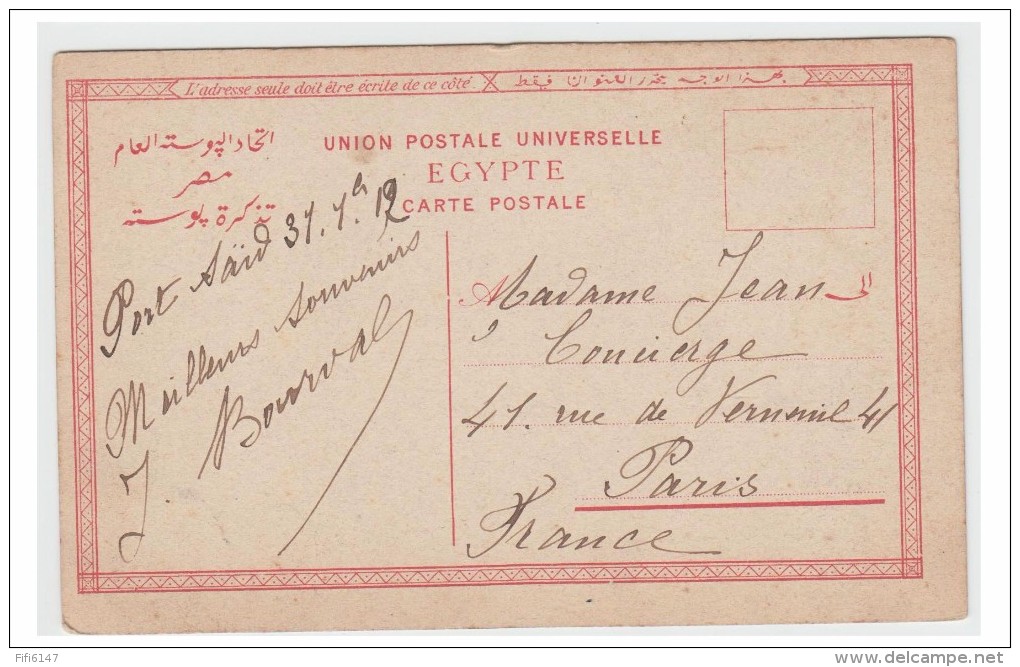 L'adresse seule doit être écrite de ce côté.
بهذا الوجه يحرر العنوان فقط
اتحاد البوسته العام
مصر
تذكرة بوسته
UNION POSTALE UNIVERSELLE
EGYPTE
CARTE POSTALE
Port Saïd 31. 1. 12
Meilleurs Souvenirs
J. Bourval
الى
Madame Jean
Concierge
41. rue de Verneuil 41
Paris
France
Fifi6147
delcampe.net